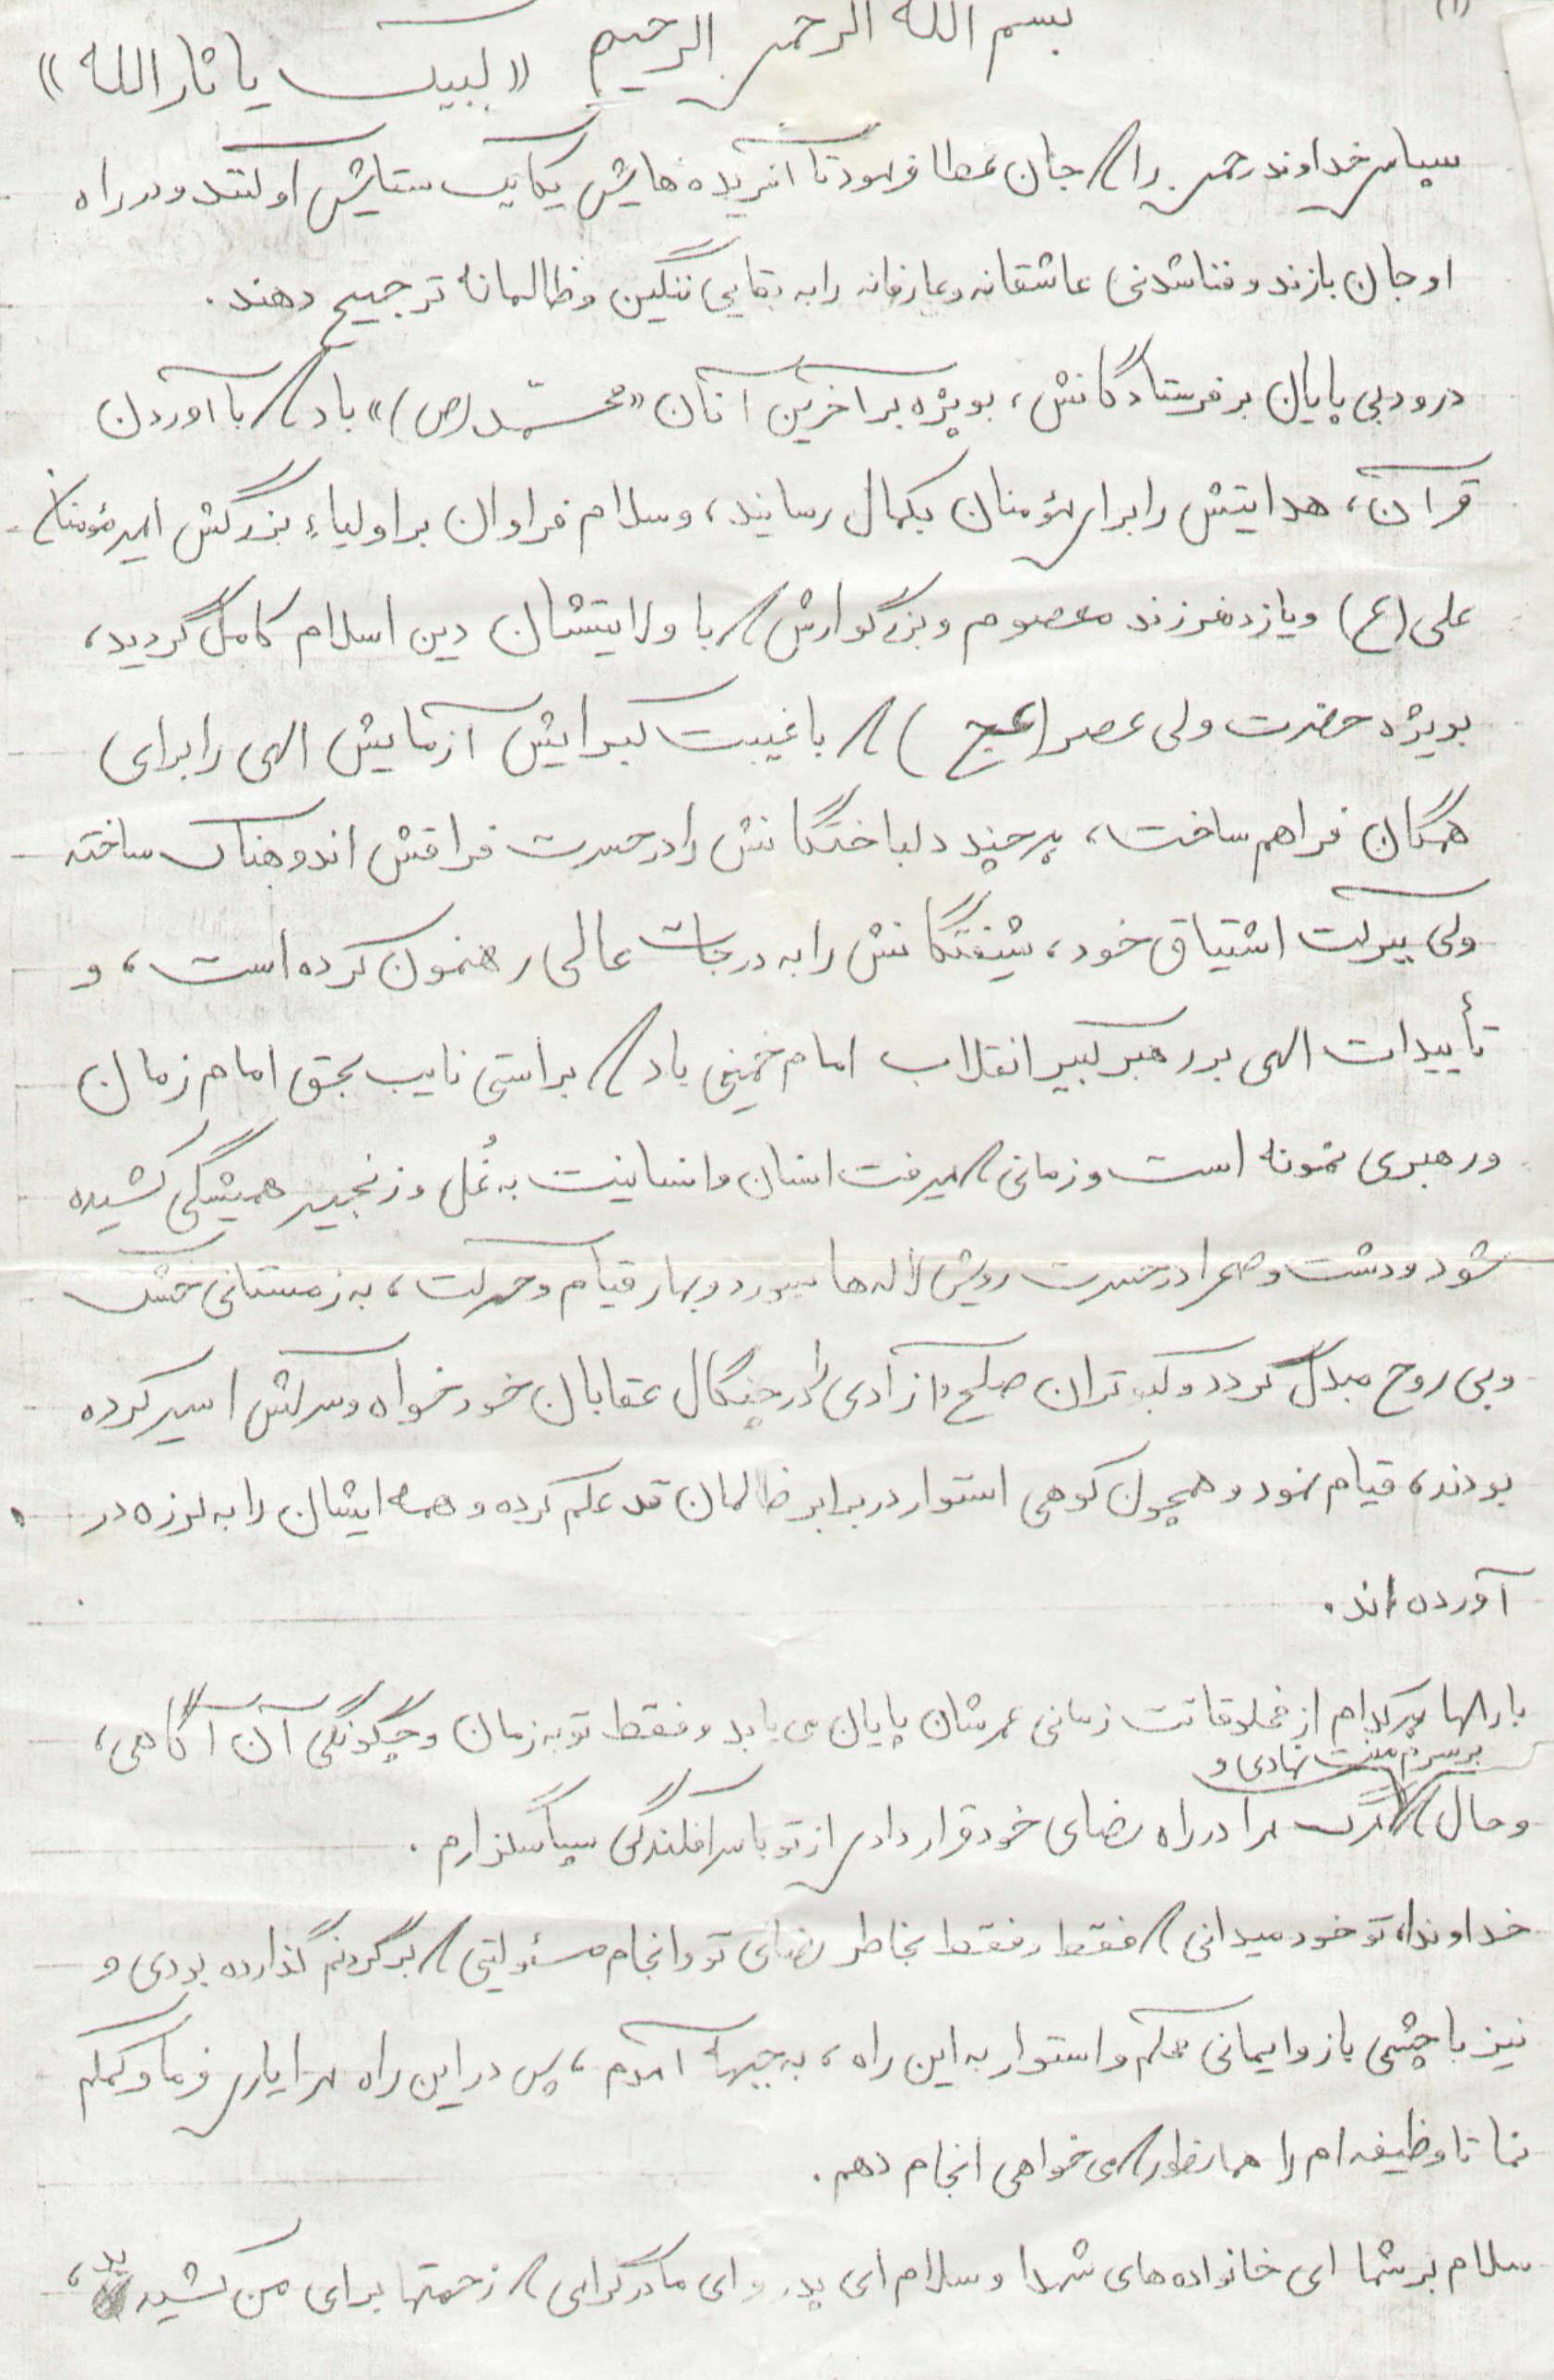 (۱)
بسم الله الرحمن الرحیم «لبیک یا ثارالله»
سپاس خداوند رحمن را که جان عطا فرمود تا آفریده هایش یکایک ستایش او کنند و در راه
او جان بازند و فنا شدنی عاشقانه و عارفانه را به بقایی ننگین و ظالمانه ترجیح دهند.
درود بی پایان بر فرستادگانش، بویژه بر آخرین آنان «محمّد (ص)» باد که با آوردن
قرآن، هدایتش را برای مؤمنان بکمال رسانید، و سلام فراوان بر اولیاء بزرگش امیرمؤمنان
علی (ع) و یازده فرزند معصوم و بزرگوارش که با ولایتشان دین اسلام کامل گردید،
بویژه حضرت ولی عصر (عج) که با غیبت کبرایش آزمایش الهی را برای
همگان فراهم ساخت، هر چند دلباختگانش را در حسرت فراقش اندوهناک ساخته
ولی ببرکت اشتیاق خود، شیفتگانش را به درجات عالی رهنمون کرده است، و
تأییدات الهی بر رهبر کبیر انقلاب امام خمینی باد که براستی نایب بحق امام زمان
و رهبری نمونه است و زمانی که میرفت انسان و انسانیت به غُل و زنجیر همیشگی کشیده
شود و دشت و صحرا در حسرت رویش لاله ها میسوزد و بهار قیام و حرکت، به زمستانی خشک
و بی روح مبدل گردد و کبوتران صلح و آزادی را در چنگال عقابان خودخواه و سرکش اسیر کرده
بودند، قیام نمود و همچون کوهی استوار در برابر ظالمان قد علم کرده و همه ایشان را به لرزه در
آورده اند.
بارالها هر کدام از مخلوقاتت زمانی عمرشان پایان می یابد و فقط تو به زمان و چگونگی آن آگاهی،
بر سرم منت نهادی و
و حال که مرگ مرا در راه رضای خود قرار دادی از تو با سرافکندگی سپاسگزارم.
خداوندا، تو خود میدانی که فقط و فقط بخاطر رضای تو و انجام مسئولیتی که بر گردنم گذارده بودی و
نیز با چشمی باز و ایمانی محکم و استوار به این راه، به جبهه آمدم، پس در این راه مرا یاری فرما و کمکم
نما تا وظیفه ام را همانطور که می خواهی انجام دهم.
سلام بر شما ای خانواده های شهدا و سلام ای پدر و ای مادر گرامی که زحمتها برای من کشیدید،